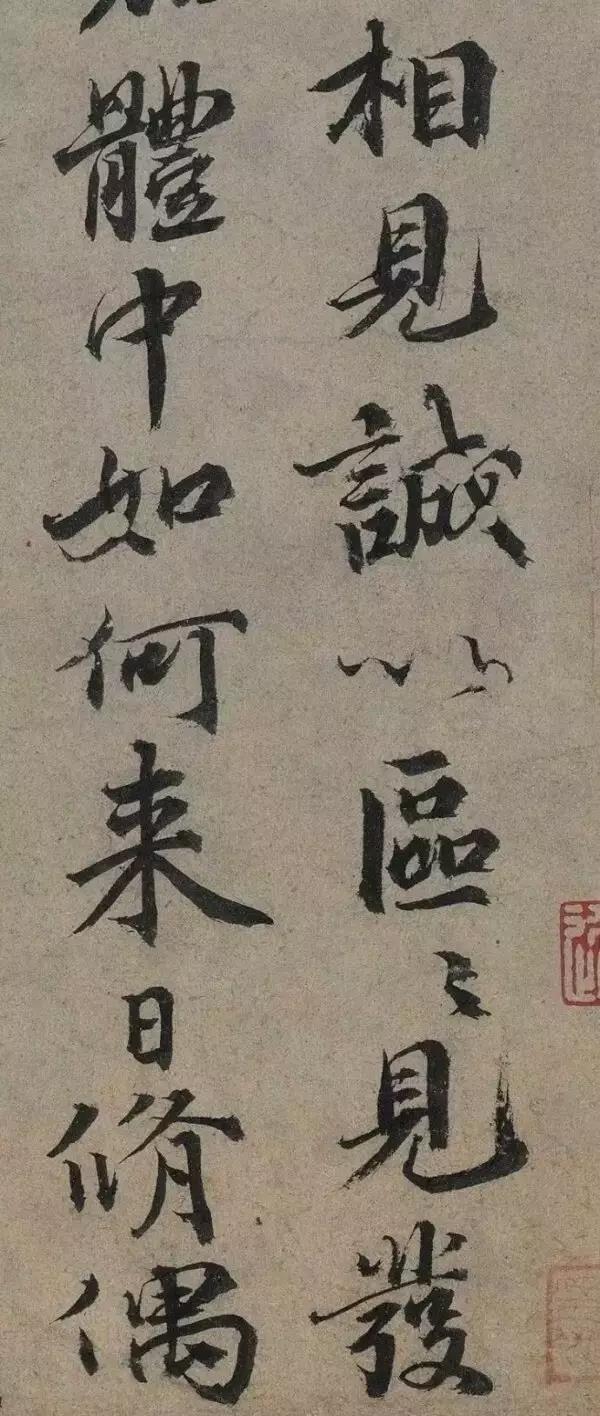 相見誠以區〻見發
體中如何来日脩偶